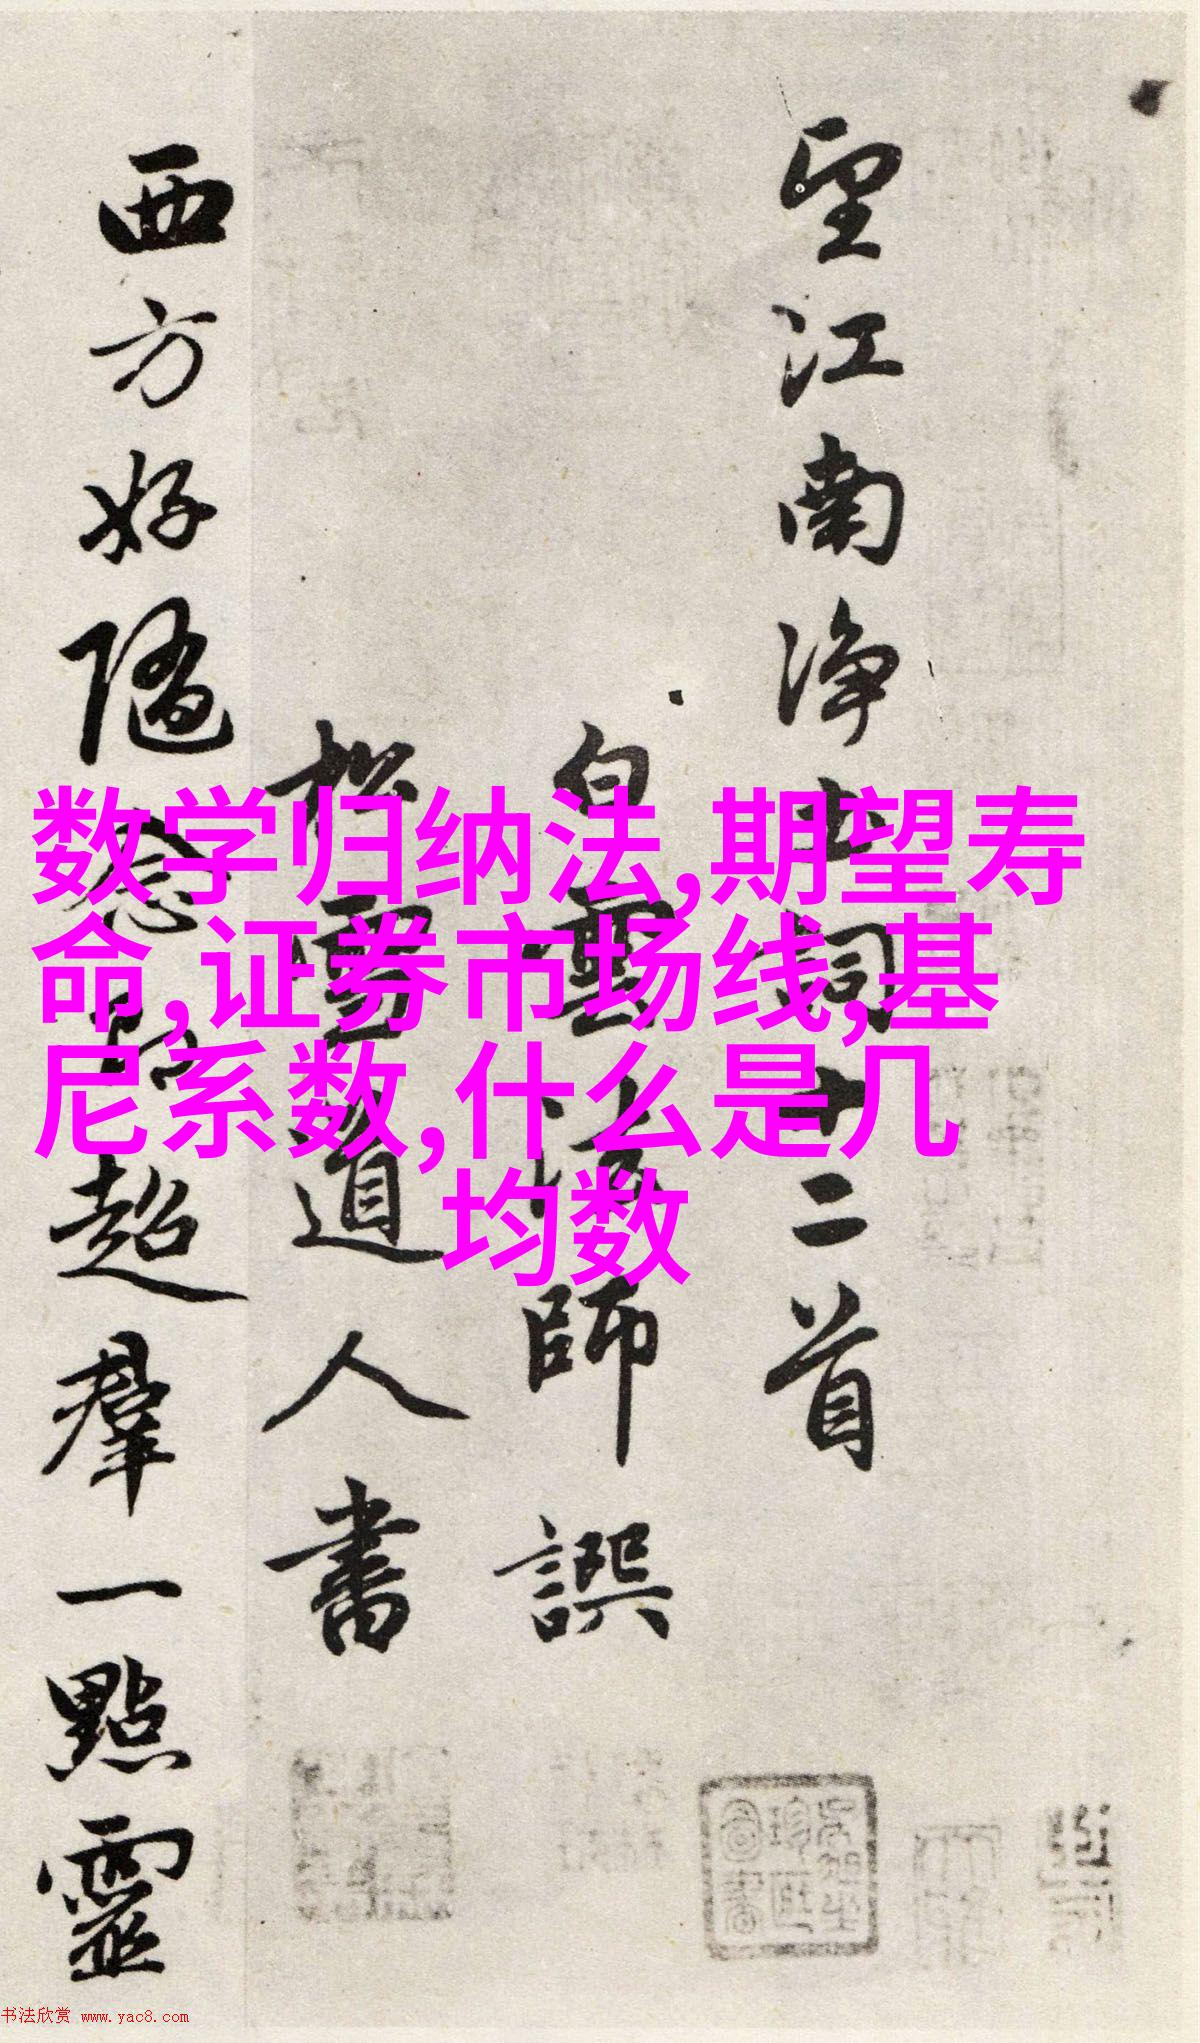 望江南淨土詞十二首
白雲法師譔
松雪道人書
西方好隨念即超羣一點靈
数学归纳法,期望寿
命,证券市场线,基
尼系数,什么是几
均数
书法欣赏 www.yac8.com